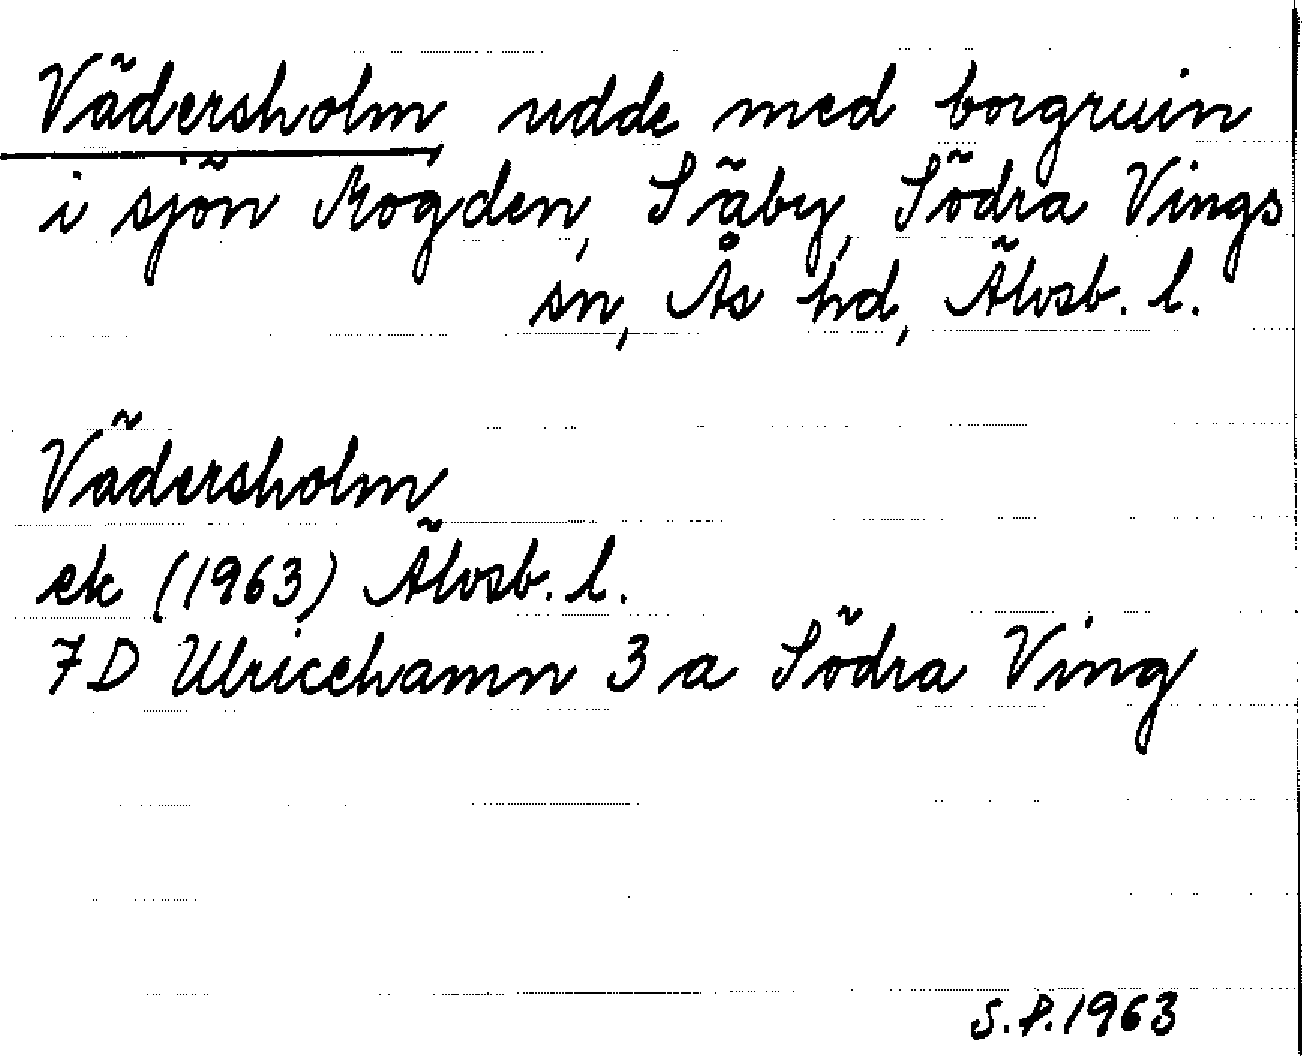 Vädersholm, udde med borgruin
i sjön Mogden, Säby, Södra Vings
sn, Ås hd, Älvsb. l.
Vädersholm
ek (1963) Älvsb. l.
7 D Ulricehamn 3 a Södra Ving
S.P. 1963